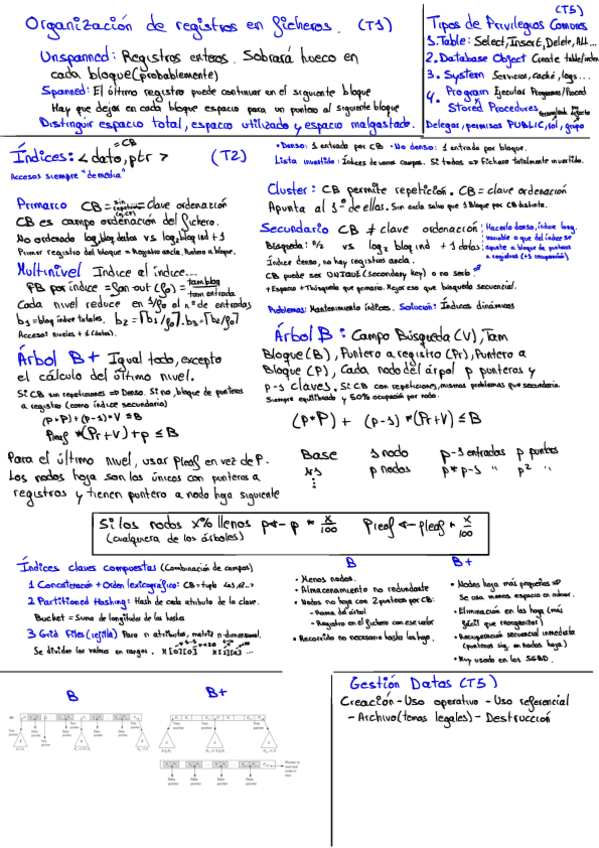 Organización de registros en ficheros. (T1)
Unspanned: Registros enteros. Sobrará hueco en
cada bloque (probablemente)
Spanned: El último registro puede continuar en el siguiente bloque
Hay que dejar en cada bloque espacio para un puntero al siguiente bloque
Distinguir espacio total, espacio utilizado y espacio malgastado.
(T5)
Tipos de Privilegios Comunes
1. Table: Select, Insert, Delete, All...
2. Database Object Create table/index
3. System Servicios, caché, logs...
4. Program Ejecutar Programas/Proced
Stored Procedures
Delegar, permisos PUBLIC, rol, grupo
=CB
Índices: < dato, ptr > (T2)
Accesos siempre "de media"
• Denso: 1 entrada por CB • No denso: 1 entrada por bloque.
Lista invertida: Índices de varios campos. Si todos => Fichero totalmente invertido.
Primario CB = = clave ordenación
CB es campo ordenación del fichero.
No ordenado log₂ blog datos vs log₂ blog ind + 1
Primer registro del bloque = Registro ancla. Puntero a bloque.
Cluster: CB permite repetición. CB = clave ordenación
Apunta al 1º de ellos. Sin ancla salvo que 1 Bloque por CB distinto.
Secundario CB ≠ clave ordenación
Búsqueda: b/2 vs log₂ blog ind + 1 datos
Índice denso, no hay registros ancla.
CB puede ser UNIQUE (Secondary key) o no serlo
+Espacio +Tbúsqueda que primario. Mejor eso que búsqueda secuencial.
Problemas: Mantenimiento índices. Solución: Índices dinámicos
Multinivel Indice al índice...
Cada nivel reduce en 1/fo al nº de entradas
b1 = blog índice totales. b2 = ⌈b1/fo⌉. b3 = ⌈b2/fo⌉
Accesos: niveles + 1 (datos).
Árbol B+ Igual todo, excepto
el cálculo del último nivel.
Si CB sin repeticiones => Denso. Si no, bloque de punteros
a registro (como índice secundario)
(p*P) + (p-1)*V ≤ B
Pleaf * (Pr+V) + p ≤ B
Para el último nivel, usar Pleaf en vez de P.
Los nodos hoja son los únicos con punteros a
registros y tienen puntero a nodo hoja siguiente
Árbol B: Campo Búsqueda (V), Tam
Bloque (B), Puntero a registro (Pr), Puntero a
Bloque (P), Cada nodo del árbol p punteros y
p-1 claves. Si CB con repeticiones, mismos problemas que secundario.
Siempre equilibrado y 50% ocupación por nodo.
(p*P) + (p-1) * (Pr+V) ≤ B
Base 1 nodo p-1 entradas p punteros
N1 p nodos p* p-1 " p² "
Si los nodos x% llenos p <- p * x/100 Pleaf <- pleaf * x/100
(cualquiera de los árboles)
Índices claves compuestas (Combinación de campos)
1 Concatenación + Orden lexicográfico: CB = tupla
2 Partitioned Hashing: Hash de cada atributo de la clave.
Bucket = Suma de longitudes de los hashes
3 Grid Files (rejilla) Para n atributos, matriz n-dimensional.
Se dividen los valores en rangos.
B
• Menos nodos.
• Almacenamiento no redundante
• Nodos no hoja con 2 punteros por CB:
- Rama del árbol
- Registro en el fichero con ese valor
• Recorrido no necesario hasta las hojas.
B+
• Nodos hoja más pequeños =>
• Eliminación en las hojas (más
fácil que reorganizar)
• Recuperación secuencial inmediata
(punteros sig. en nodos hoja)
• Muy usado en los SGBD.
B
B+
Gestión Datos (T5)
Creación - Uso operativo - Uso referencial
- Archivo (temas legales) - Destrucción